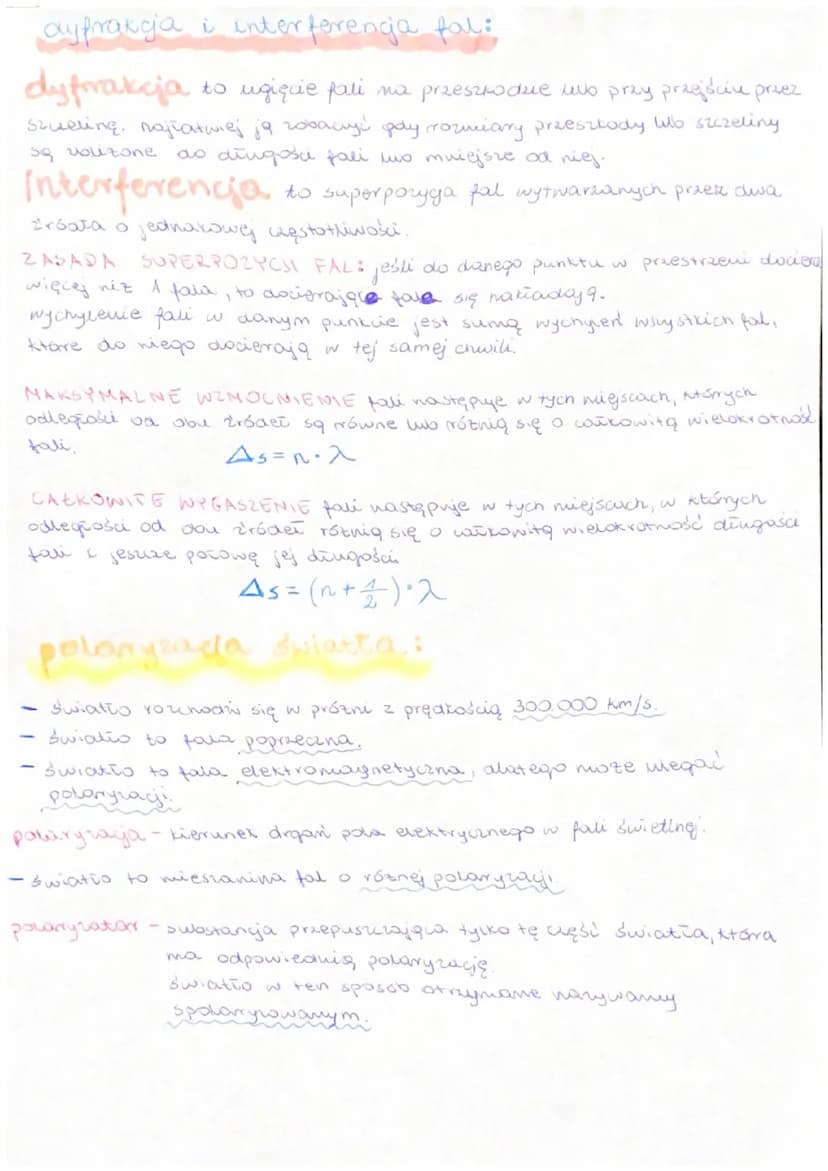 dyfrakcja i interferencja fal:
dyfrakcja to ugięcie fali na przeszkodzie lub przy przejściu przez
szczelinę. najłatwiej ją zobaczyć gdy rozmiary przeszkody lub szczeliny
są zbliżone do długości fali lub mniejsze od niej.
Interferencja to superpozycja fal wytwarzanych przez dwa
źródła o jednakowej częstotliwości.
ZASADA SUPERPOZYCJI FAL: jeśli do danego punktu w przestrzeni dociera
więcej niż 1 fala, to docierające fale się nakładają.
wychylenie fali w danym punkcie jest sumą wychyleń wszystkich fal,
które do niego docierają w tej samej chwili.
MAKSYMALNE WZMOCNIENIE fali następuje w tych miejscach, których
odległości od obu źródeł są równe lub różnią się o całkowitą wielokrotność
fali.
Δs = n · λ
CAŁKOWITE WYGASZENIE fali następuje w tych miejscach, w których
odległości od obu źródeł różnią się o całkowitą wielokrotność długości
fali i jeszcze połowę jej długości
Δs = (n + 1/2) · λ
polaryzacja światła:
- światło rozchodzi się w próżni z prędkością 300.000 km/s.
- światło to fala poprzeczna.
- światło to fala elektromagnetyczna, dlatego może ulegać
polaryzacji.
polaryzacja - kierunek drgań pola elektrycznego w fali świetlnej.
- światło to mieszanina fal o różnej polaryzacji
polaryzator - substancja przepuszczająca tylko tę część światła, która
ma odpowiednią polaryzację.
światło w ten sposób otrzymane nazywamy
spolaryzowanym.